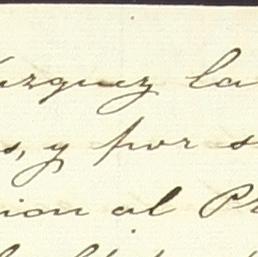 azquez la
s, y por s
ion al Pr